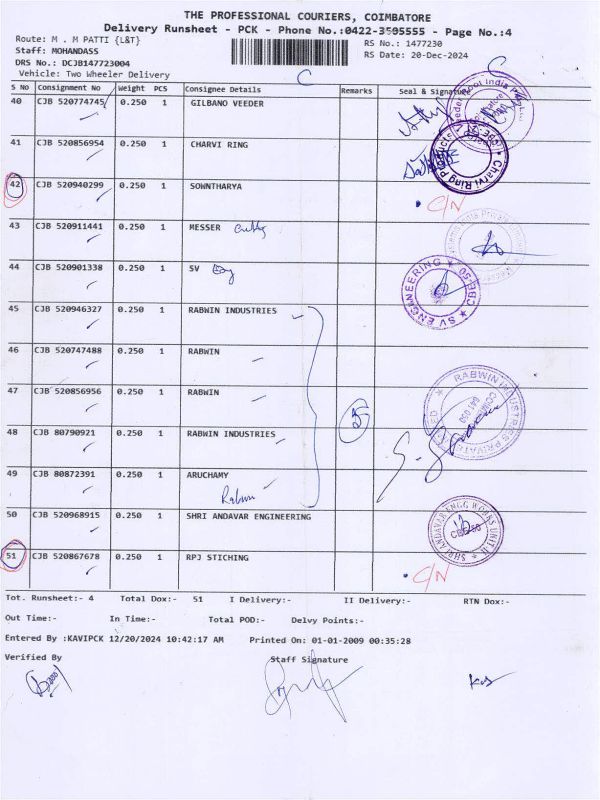 THE PROFESSIONAL COURIERS, COIMBATORE
Delivery Runsheet - PCK - Phone No.:0422-3505555 - Page No.:4
Route: M . M PATTI {L&T}
RS No.: 1477230
Staff: MOHANDASS
RS Date: 20-Dec-2024
DRS No.: DCJB147723004
Vehicle: Two Wheeler Delivery
C C
S No Consignment No Weight PCS Consignee Details Remarks Seal & Signature
40 CJB 520774745 0.250 1 GILBANO VEEDER
41 CJB 520856954 0.250 1 CHARVI RING Charvi Ring Products
42 CJB 520940299 0.250 1 SOWNTHARYA C/N
43 CJB 520911441 0.250 1 MESSER
44 CJB 520901338 0.250 1 SV SV ENGINEERING CBE-50
45 CJB 520946327 0.250 1 RABWIN INDUSTRIES
46 CJB 520747488 0.250 1 RABWIN
47 CJB 520856956 0.250 1 RABWIN 5 RABWIN INDUSTRIES PRIVATE LIMITED 641 050
48 CJB 80790921 0.250 1 RABWIN INDUSTRIES
49 CJB 80872391 0.250 1 ARUCHAMY
Rabwin
50 CJB 520968915 0.250 1 SHRI ANDAVAR ENGINEERING SHRI ANDAVAR ENGG WORKS UNIT II CBE-50
51 CJB 520867678 0.250 1 RPJ STICHING C/N
Tot. Runsheet:- 4 Total Dox:- 51 I Delivery:- II Delivery:- RTN Dox:-
Out Time:- In Time:- Total POD:- Delvy Points:-
Entered By :KAVIPCK 12/20/2024 10:42:17 AM Printed On: 01-01-2009 00:35:28
Verified By Staff Signature